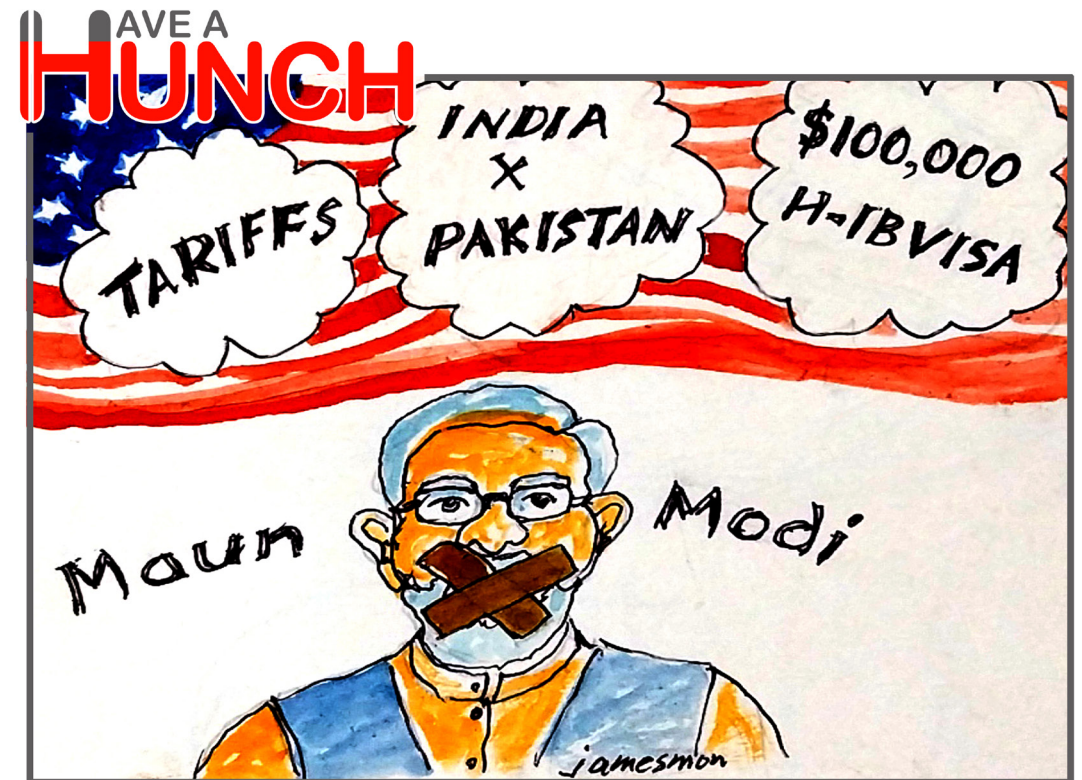 HAVE A
HUNCH
TARIFFS
INDIA
X
PAKISTAN
$100,000
H-1BVISA
Maun
Modi
jamesmon